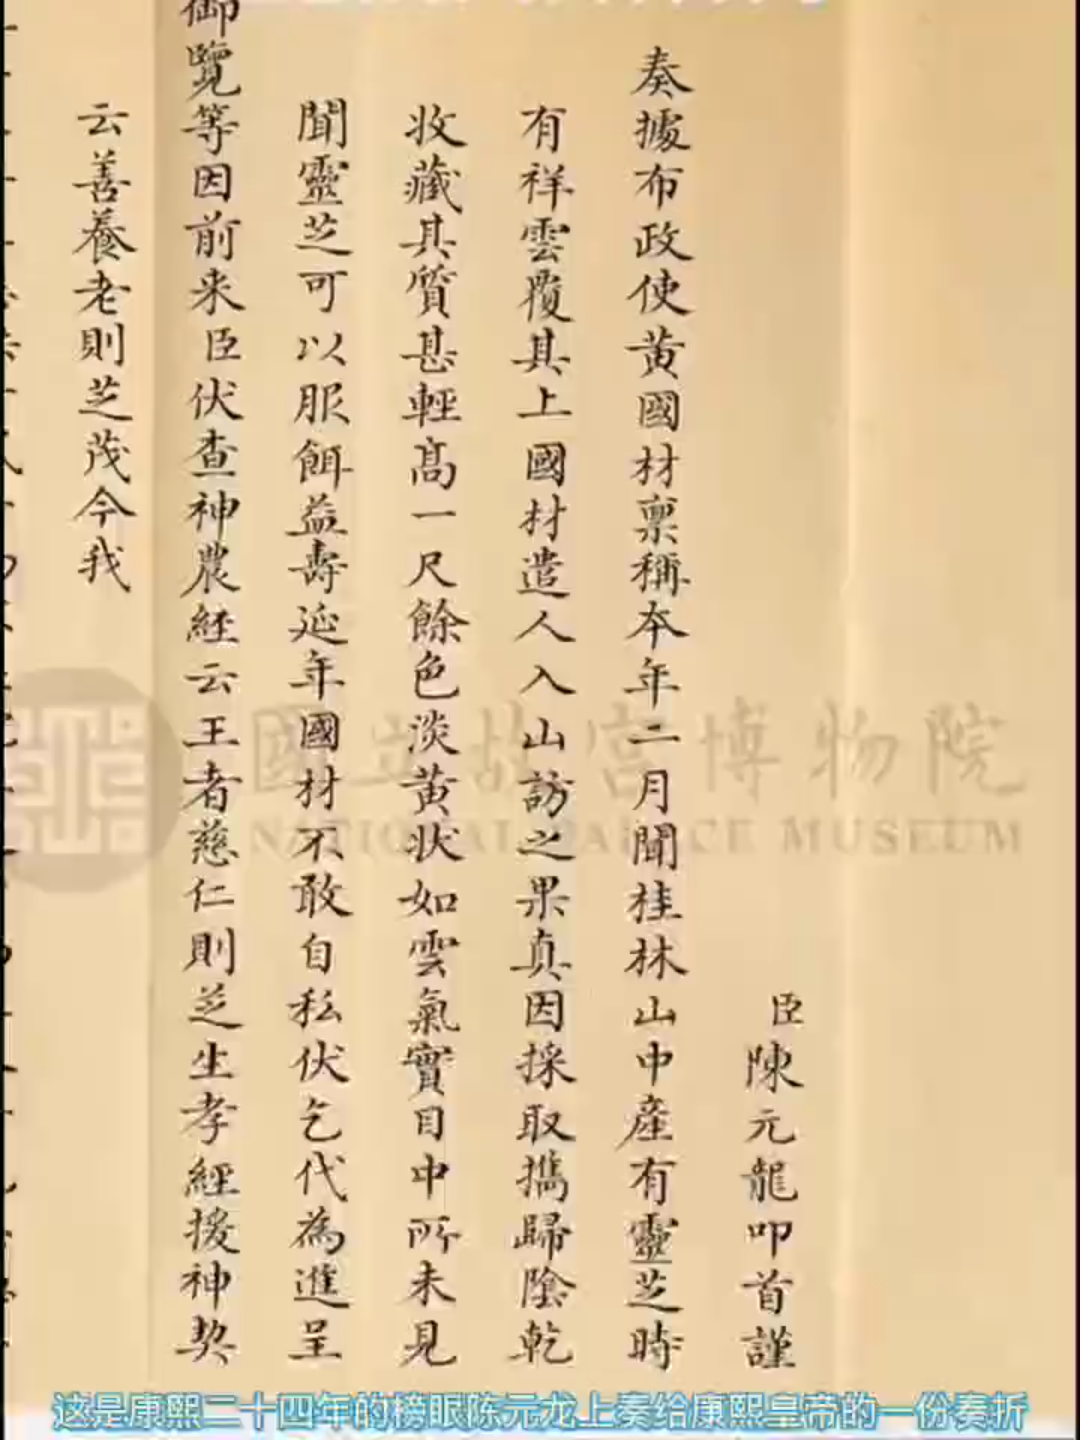 臣陳元龍叩首謹
奏據布政使黃國材稟稱本年二月聞桂林山中產有靈芝時
有祥雲覆其上國材遣人入山訪之果真因採取攜歸陰乾
收藏其質甚輕高一尺餘色淡黃狀如雲氣實目中所未見
聞靈芝可以服餌益壽延年國材不敢自私伏乞代為進呈
御覽等因前来臣伏查神農經云王者慈仁則芝生孝經援神契
云善養老則芝茂今我
國立故宮博物院
NATIONAL PALACE MUSEUM
这是康熙二十四年的榜眼陈元龙上奏给康熙皇帝的一份奏折